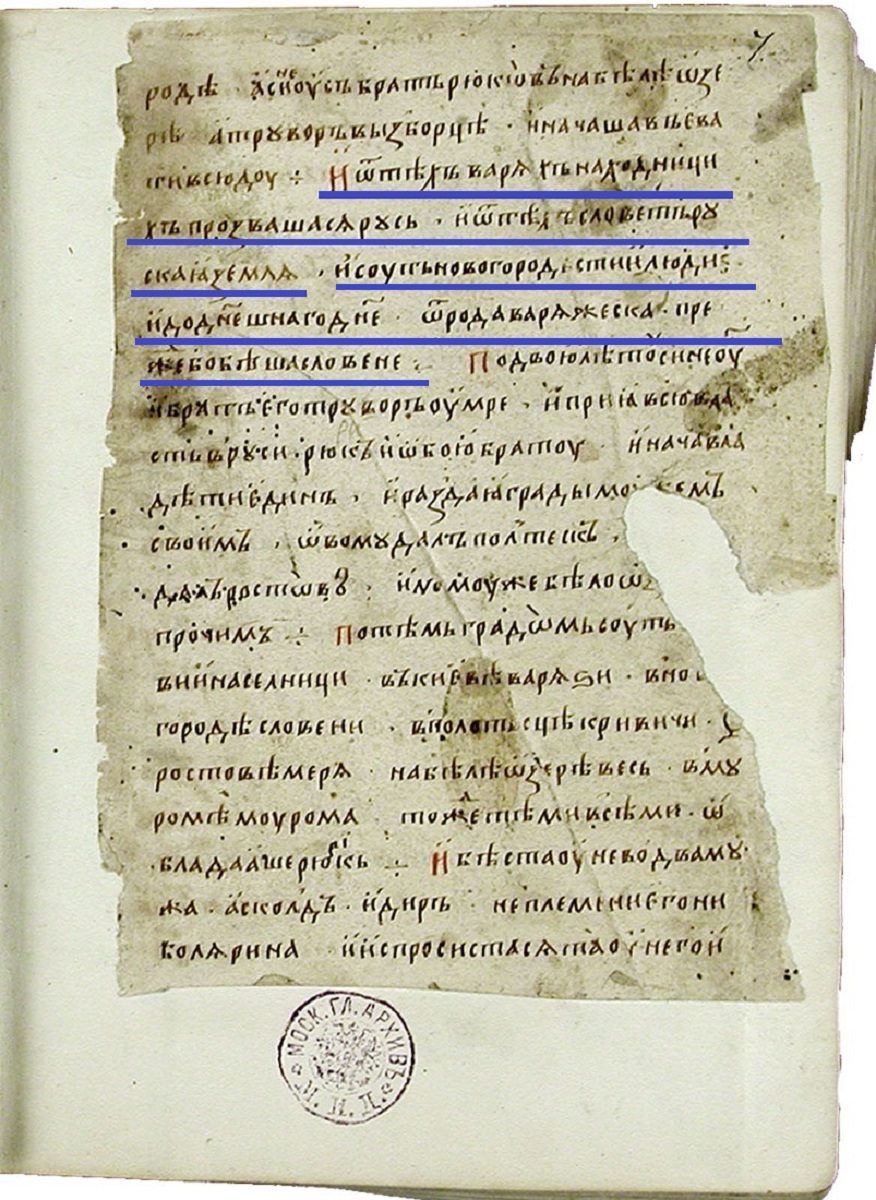 7
родѣ · а синеоусъ братъ рюковъ на бѣлѣ ѡзе
рѣ а троуворъ въ изборцѣ · и начаша в҃оева
ти всюдоу ÷ И ѿ тѣхъ варяхъ находници
хъ прозвашася русь · и ѿ тѣхъ словет ру
скаꙗ земля · и соуть новогородстии людие
и до днешнаго дне · ѿ рода варяжеска · пре
же бо бѣша словене · По двою лѣтоу синеоу
и братъ его троуворъ оумре · и приꙗ всю вла
сть в руси · рюкъ и ѡбою братоу и нача вла
дѣти един · и раздаꙗ грады моужемъ
своимъ · ѿвомоу далъ полтескъ ·
далъ ростовъ · иномоу же бѣло ѡз
прочимъ ÷ По тѣмь градомь соуть
вии населници · в киевѣ варяѕи · в но
городѣ словени · в полотьсцѣ кривичи ·
ростовѣ меря на бѣлѣ ѡзерѣ весь · в му
ромѣ моурома тоже тѣми всѣми · ѡ
бладааше рюрикъ ÷ И бѣста оу него два му
жа · асколдъ · и диръ не племени его ни
болярина и испросистася та оу него и
МОСК. ГЛ. АРХИВЪ М. И. Д.